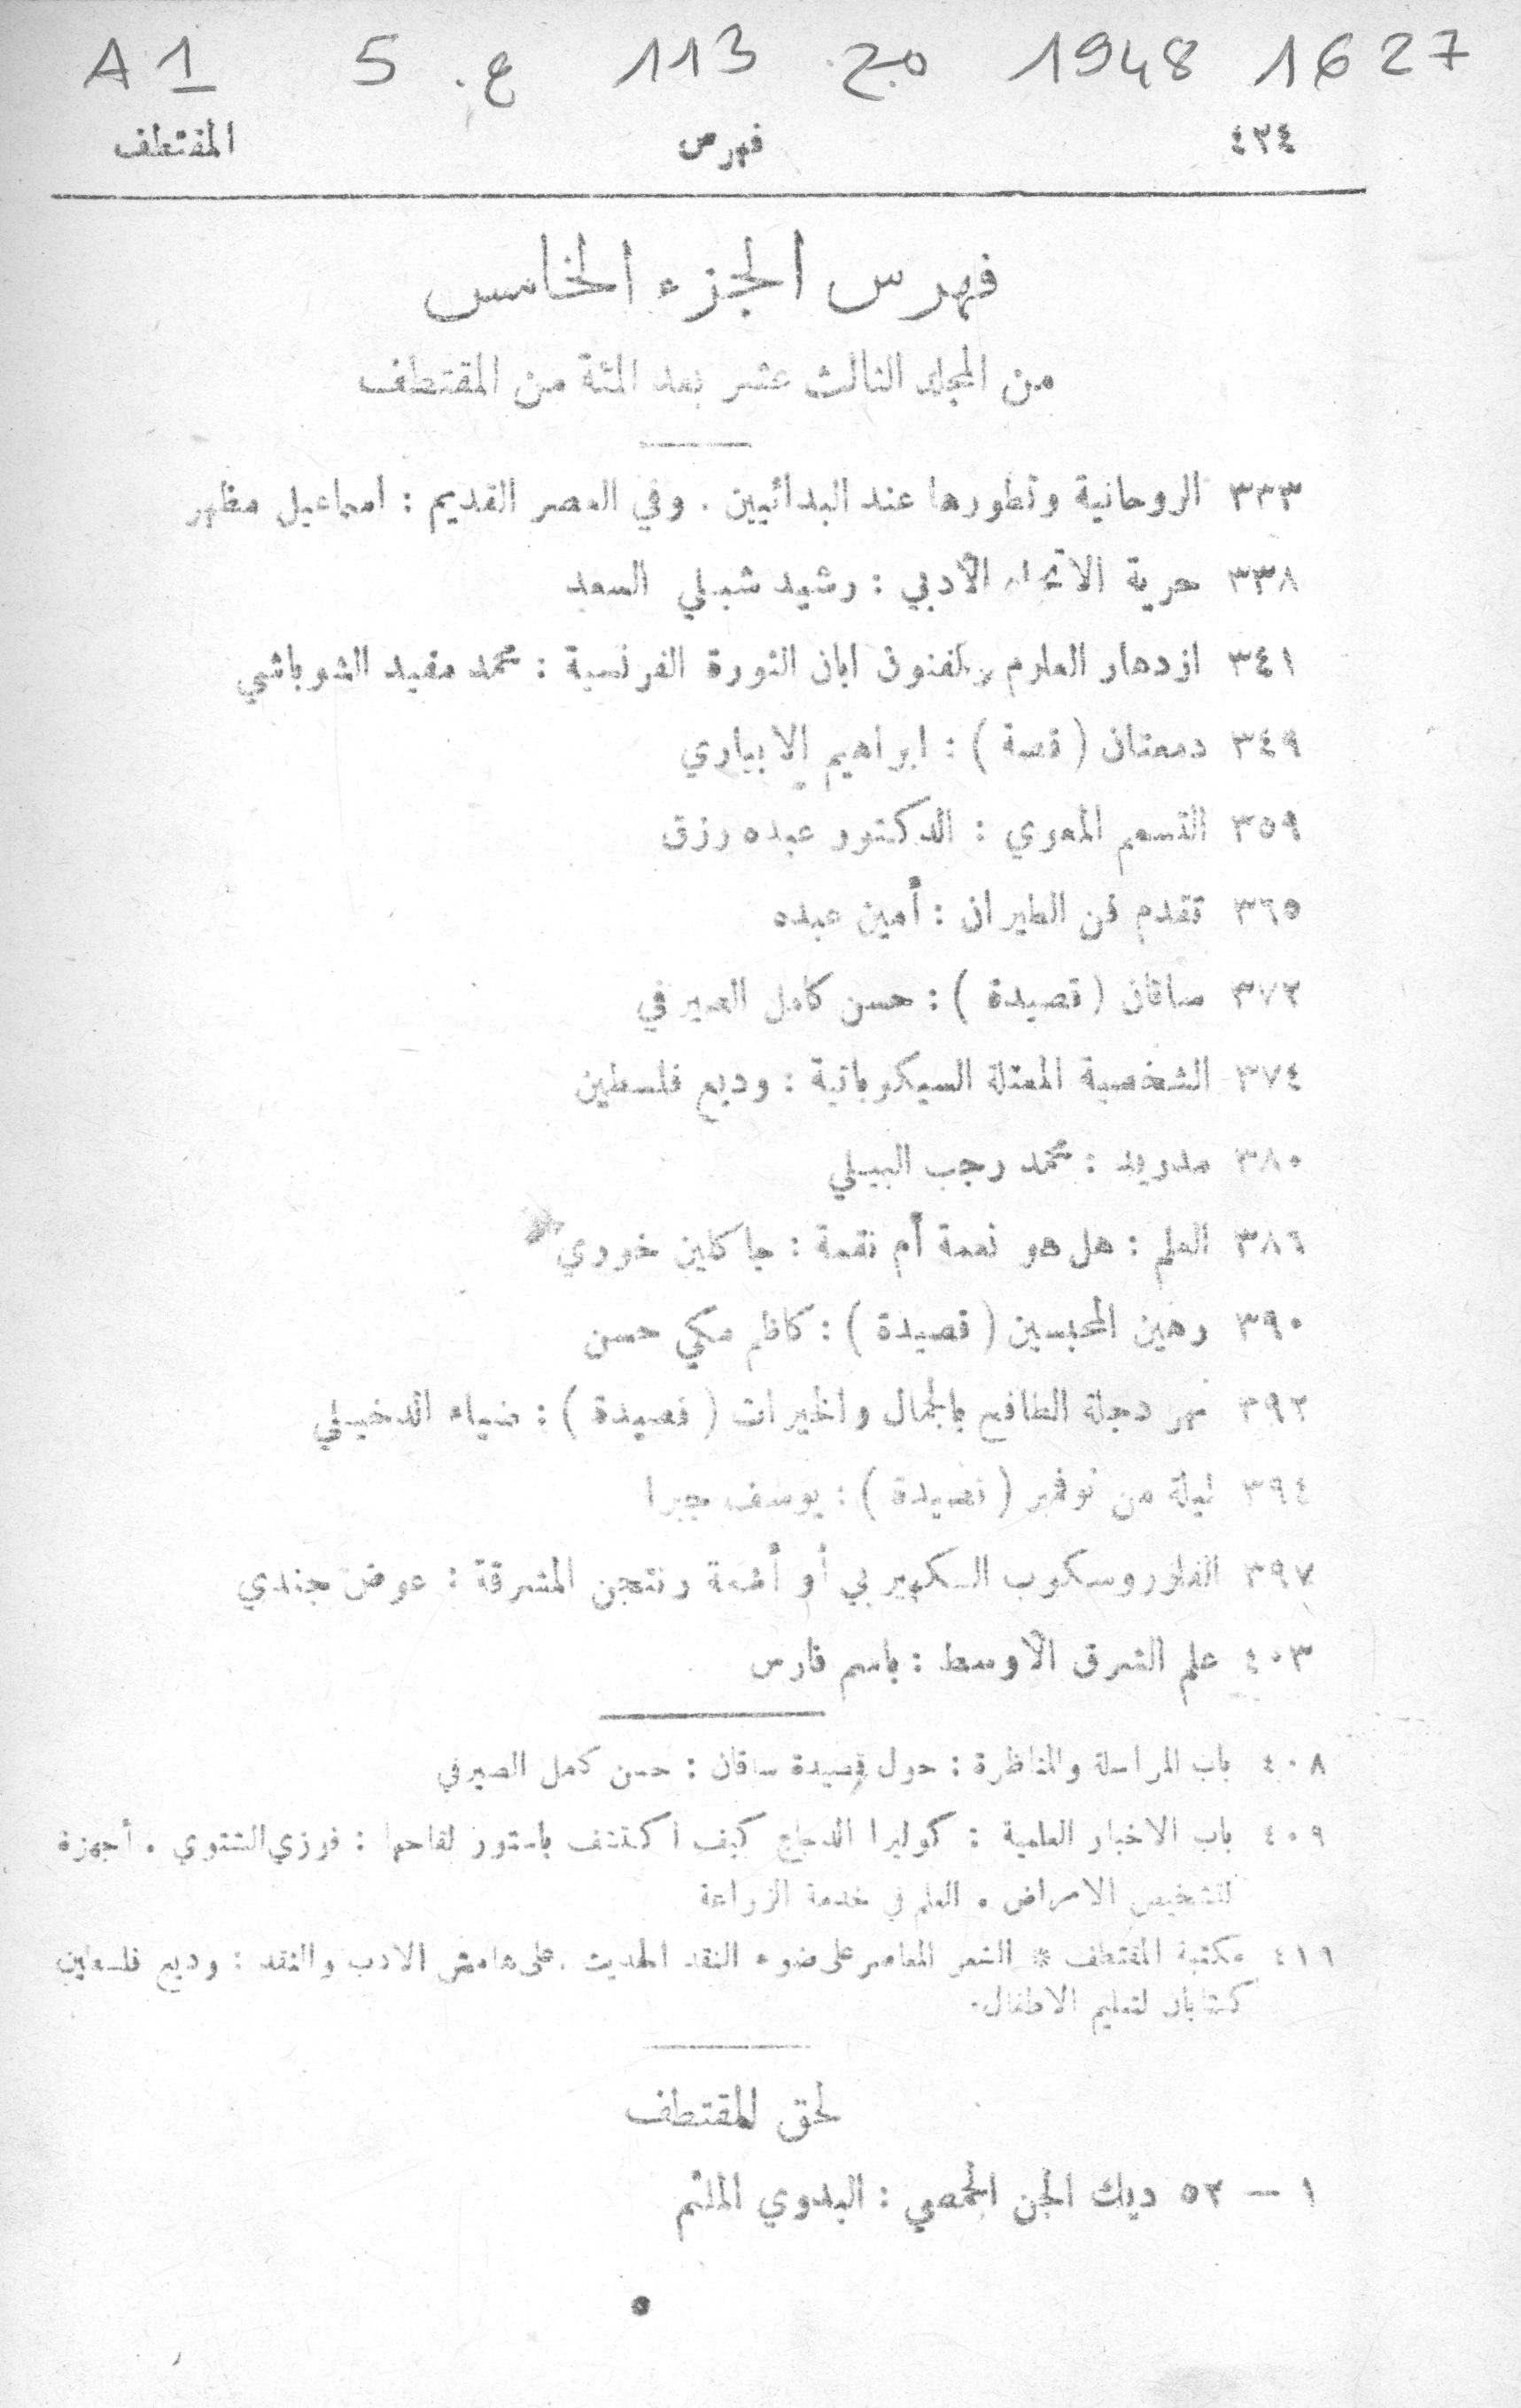 A 1 5 ع. 113 مج. 1948 1627
٤٢٤ فهرس المقتطف
فهرس الجزء الخامس
من المجلد الثالث عشر بعد المئة من المقتطف
٣٣٣ الروحانية وتطورها عند البدائيين . وفي العصر القديم : اسماعيل مظهر
٣٣٨ حرية الاتجاه الأدبي : رشيد شبلي السعد
٣٤١ ازدهار العلوم والفنون ابان الثورة الفرنسية : محمد مفيد الشوباشي
٣٤٩ دمعتان ( قصة ) : ابراهيم الابياري
٣٥٩ التسمم المعوي : الدكتور عبده رزق
٣٦٥ تقدم فن الطيران : أمين عبده
٣٧٢ ساقان ( قصيدة ) : حسن كامل الصيرفي
٣٧٤ الشخصية المعتلة السيكوباتية : وديع فلسطين
٣٨٠ مدريد : محمد رجب البيلي
٣٨٦ العلم : هل هو نعمة أم نقمة : جاكلين خوري
٣٩٠ رهين المحبسين ( قصيدة ) : كاظم مكي حسن
٣٩٢ نهر دجلة الطافح بالجمال والخيرات ( قصيدة ) : ضياء الدخيلي
٣٩٤ ليلة من نوفمبر ( قصيدة ) : يوسف جبرا
٣٩٧ الفلوروسكوب الكهيربي أو أشعة رنتجن المشرقة : عوض جندي
٤٠٣ علم الشرق الأوسط : باسم فارس
٤٠٨ باب المراسلة والمناظرة : حول قصيدة ساقان : حسن كامل الصيرفي
٤٠٩ باب الاخبار العلمية : كوليرا الدجاج كيف اكتشف باستور لقاحها : فوزي الشتوي . أجهزة
لتشخيص الامراض . العلم في خدمة الزراعة
٤١٩ مكتبة المقتطف * الشعر المعاصر على ضوء النقد الحديث . على هامش الادب والنقد : وديع فلسطين
كتابان لتعليم الاطفال.
لحق المقتطف
١ — ٥٢ ديك الجن الحمصي : البدوي الملثم